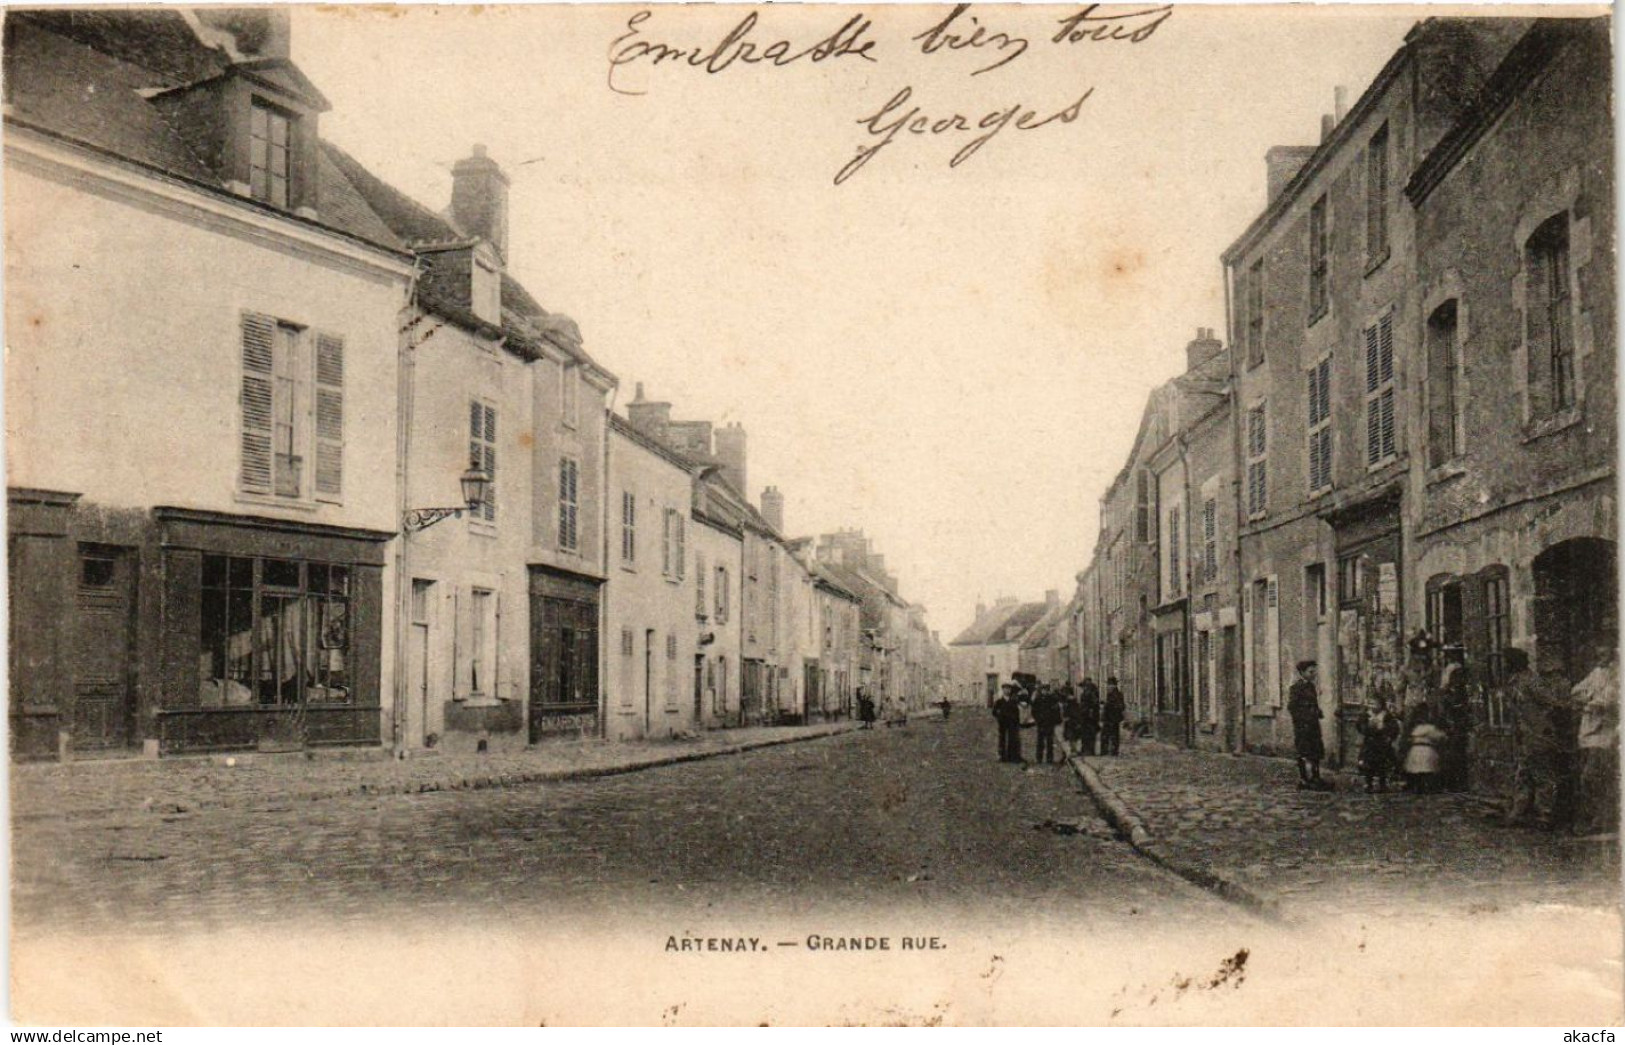 Embrasse bien tous
Georges
ARTENAY. — GRANDE RUE.
www.delcampe.net
akacfa